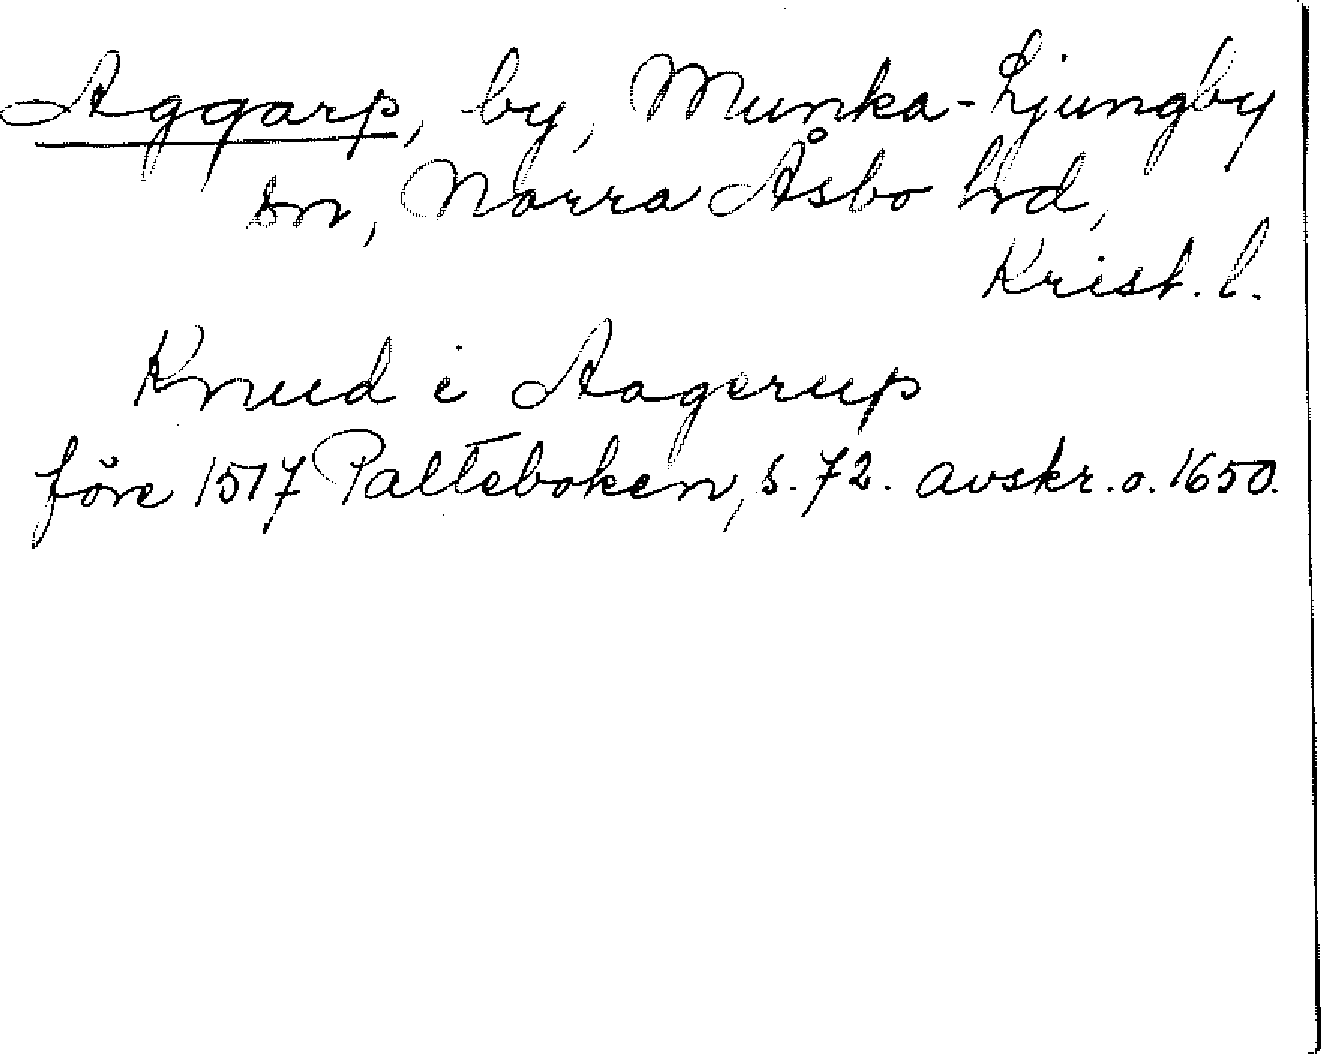 Aggarp, by, Munka-Ljungby
sn, Norra Åsbo hd,
Krist. l.
Knud i Aagerup
före 1517 Palteboken, s. 72. avskr. o. 1650.